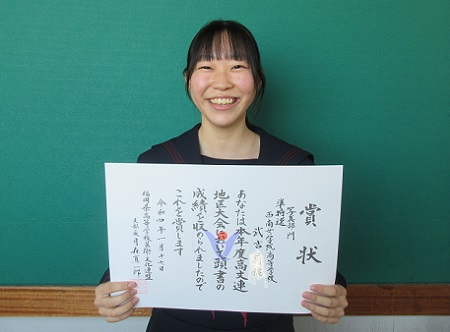 賞状
写真部門
準特選
西南女学院高等学校
武吉
あなたは本年度高文連
地区大会において頭書の
成績を収められましたので
これを賞します
令和四年一月十七日
福岡県高等学校芸術・文化連盟